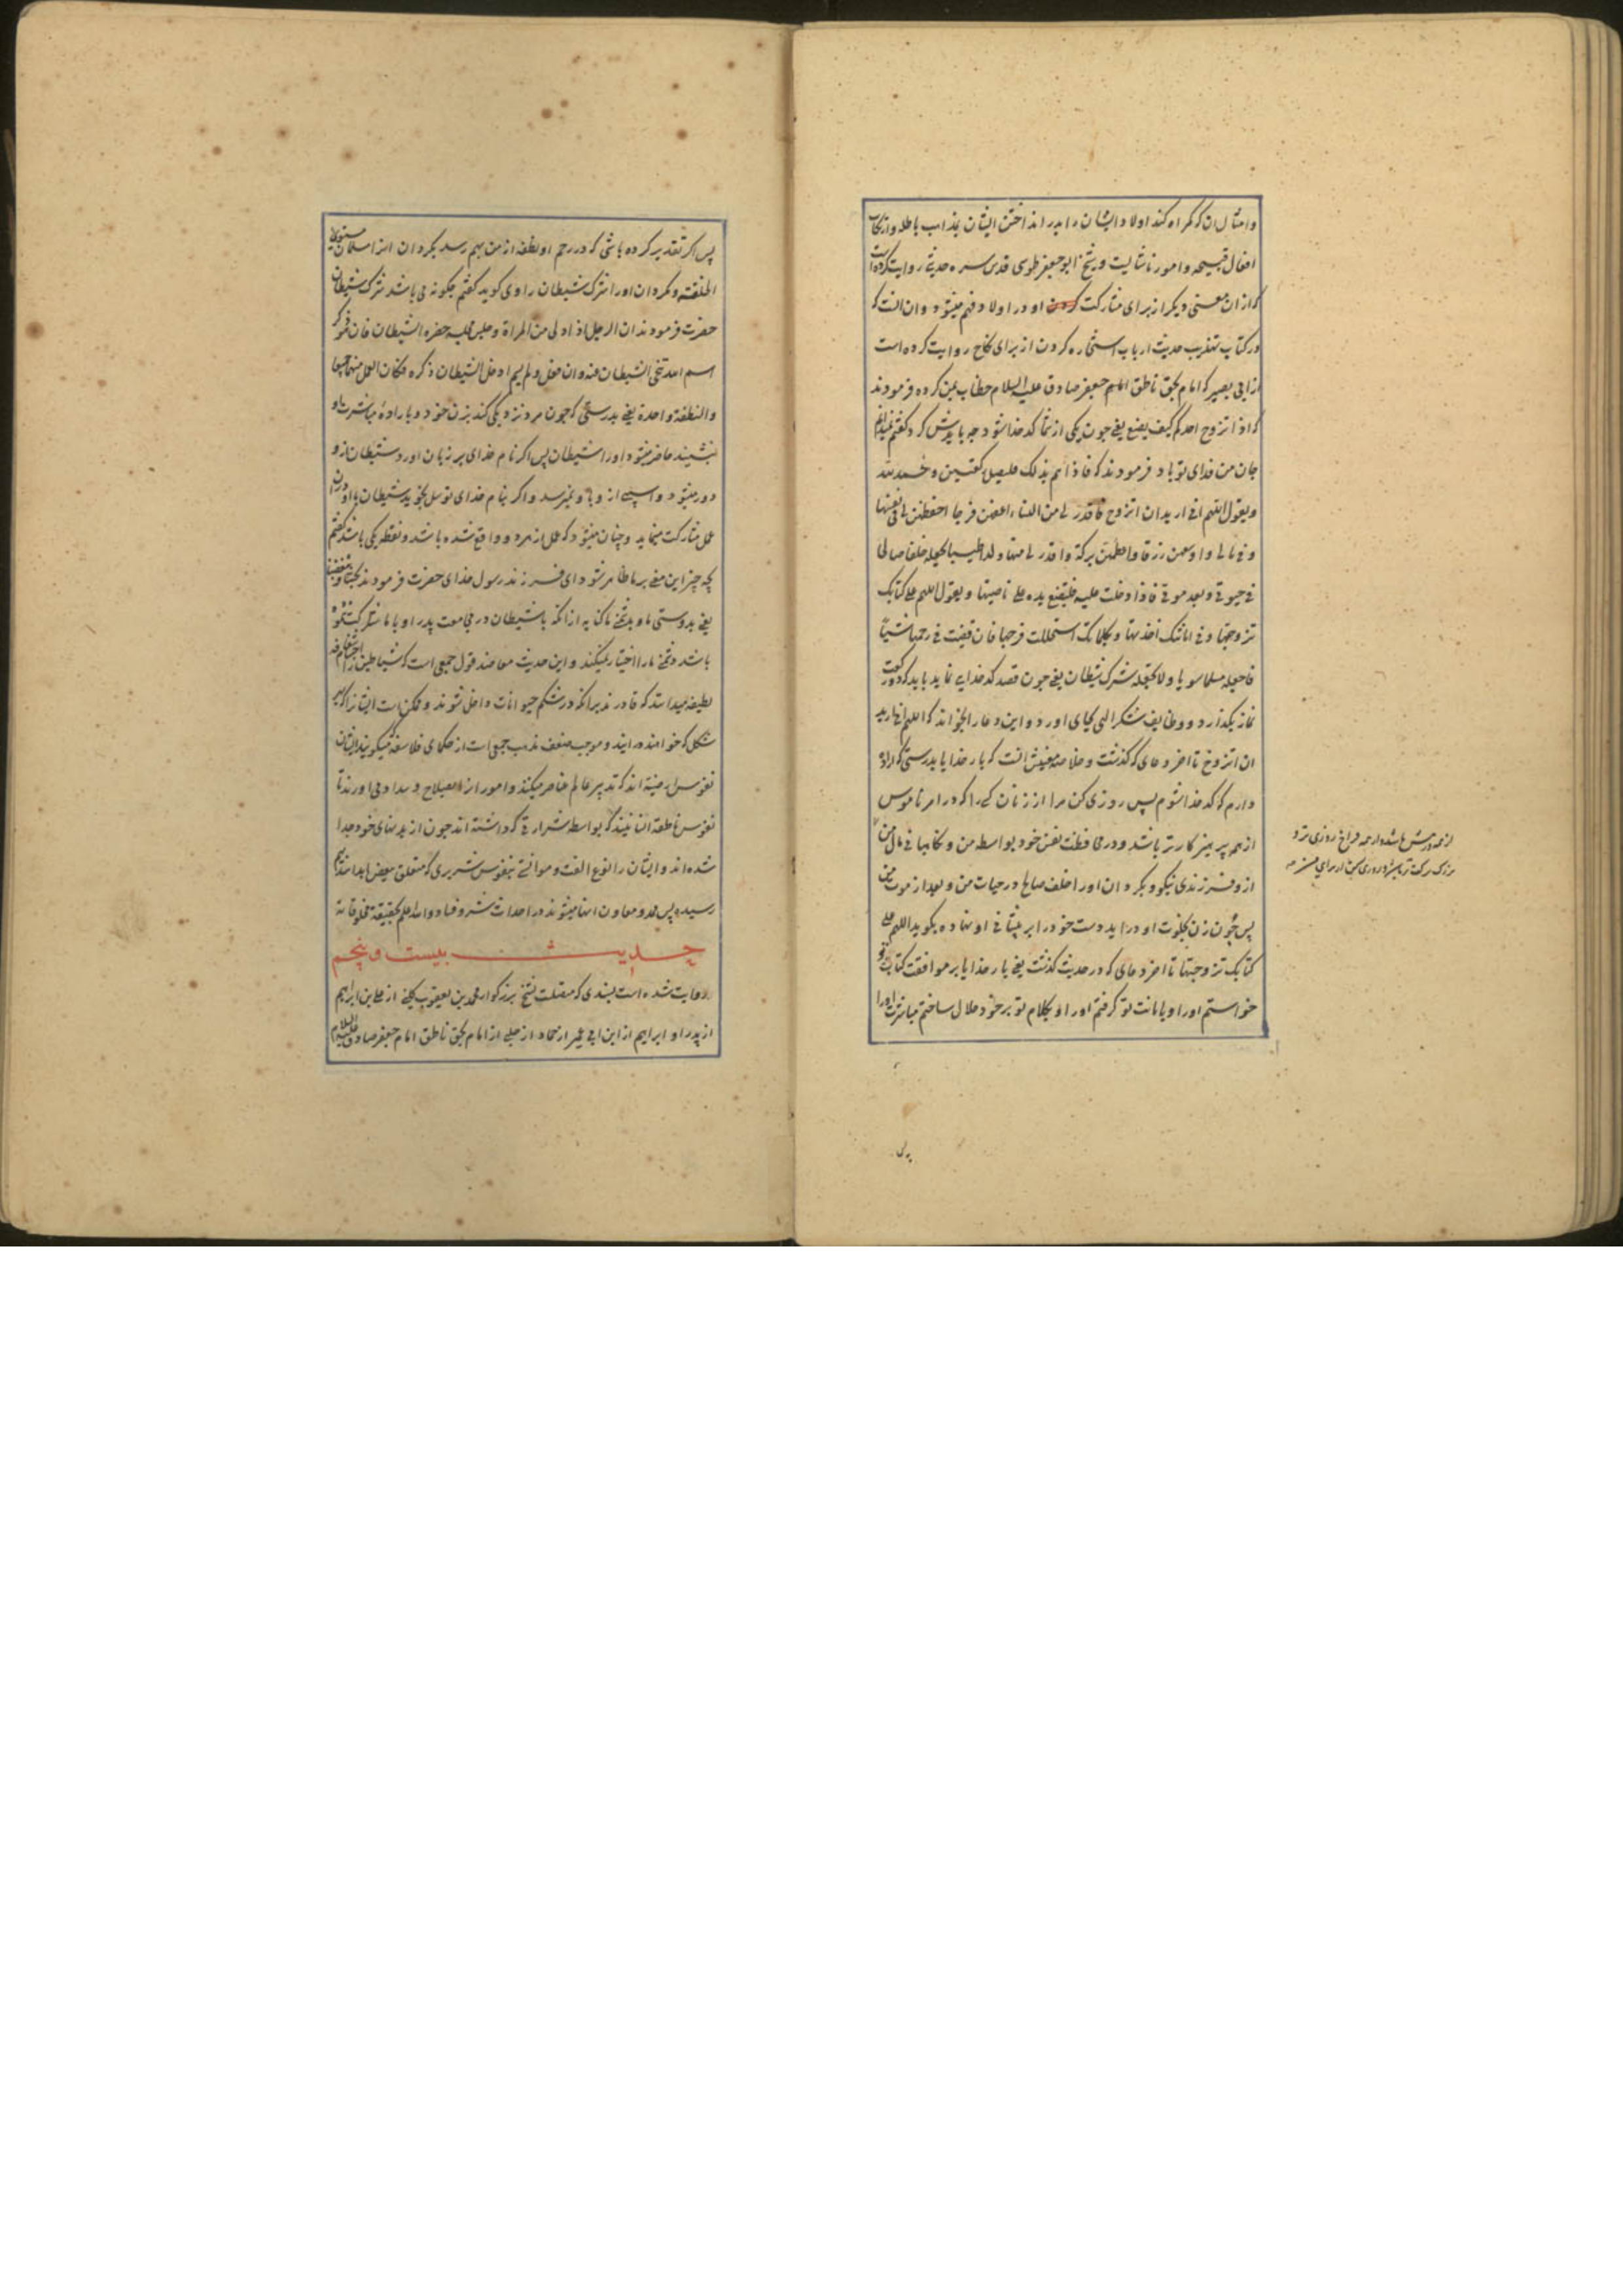 وامثال ان که کمراه کند اولاد ایشان را بدر انداختن ایشان بمذاهب باطله وارتکاب
افعال قبیحه وامور ناشایست و شیخ ابو جعفر طوسی قدس سره حدیثی روایت کرده است
که ازان معنی دیکر از برای مشارکت کردن او در اولاد فهم میشود و ان انست که
در کتاب تهذیب حدیث ارباب استخاره کردن از برای نکاح روایت کرده است
از ابی بصیر که امام بحق ناطق امام جعفر صادق علیه السلام خطاب بمن کرده فرمودند
که اذا تزوج احدکم کیف یصنع یعنی چون یکی از شما کدخدا شود چه بایدش کرد کفتم نمیدانم
جان من فدای تو باد فرمودند که فاذا هم بذلک فلیصل رکعتین و یحمد الله
ویقول اللهم انی ارید ان اتزوج فاقدر لی من النساء اعفهن فرجا احفظهن لی فی نفسها
و فی مالی و اوسعهن رزقا واعظمهن برکة واقدر لی منها ولدا طیبا تجعله خلفا صالحا
فی حیوتی وبعد موتی فاذا دخلت علیه فلیضع یده علی ناصیتها ویقول اللهم علی کتابک
تزوجتها و فی امانتک اخذتها وبکلماتک استحللت فرجها فان قضیت فی رحمها شیئا
فاجعله مسلما سویا ولا تجعله شرک شیطان یعنی چون قصد کدخدایی نماید باید که دو رکعت
نماز بکذارد و وظایف شکر الهی بجای اورد و این دعا را بخواند که اللهم انی ارید
ان اتزوج تا اخر دعای که کذشت و خلاصه معنیش انست که بار خدایا بدرستی که اراده
دارم که کدخدا شوم پس روزی کن مرا از زنان کسی را که در امر ناموس
از همه پرهیزکارتر باشد و در محافظت نفس خود بواسطه من و نکاهبانی مال من
از و فرزندی نیکو و بکردان او را خلف صالح در حیات من و بعد از موت من
پس چون زن بخلوت او در اید دست خود را بر پیشانی او نهاده بکوید اللهم علی
کتابک تزوجتها تا اخر دعای که در حدیث کذشت یعنی بار خدایا بر موافقت کتاب تو
خواستم او را و بامانت تو کرفتم او را و بکلام تو بر خود حلال ساختم مباشرت او را
پس اکر تقدیر کرده باشی که در رحم او نطفه از من بهم رسد بکردان انرا مسلمان مستوی
الخلقة و مکردان او را شرک شیطان راوی کوید کفتم چکونه می باشد شرک شیطان
حضرت فرمودند ان الرجل اذا دنی من المراة وجلس مجلسه حضره الشیطان فان هو ذکر
اسم الله تنحی الشیطان عنه وان فعل ولم یسم ادخل الشیطان ذکره فکان العمل منهما جمیعا
والنطفة واحدة یعنی بدرستی که چون مرد نزدیکی کند بزن خود و باراده مباشرت او
بنشیند حاضر میشود او را شیطان پس اکر نام خدای بر زبان اورد شیطان از و
دور میشود و اسیبی از و باو نمیرسد و اکر بنام خدای توسل نجوید شیطان با او دران
عمل مشارکت مینماید و چنان میشود که عمل از هر دو واقع شده باشد و نطفه یکی باشد کفتم
بچه چیز این معنی بر ما ظاهر شود ای فرزند رسول خدای حضرت فرمودند بحبنا و بغضنا
یعنی بدوستی ما و بدشمنی ما کنایه از انکه با شیطان در مجامعت پدر او با مادرش شرکت نموده
باشد دشمنی ما را اختیار میکند و این حدیث معاضد قول جمعی است که شیاطین را اجسام
لطیفه میدانند که قادرند بر انکه در شکم حیوانات داخل شوند و ممکن است ایشانرا که بهر
شکل که خواهند در ایند و موجب ضعف مذهب جمعی است از حکمای فلاسفه میکویند ایشان
نفوس ارضیه اند که تدبیر عالم عناصر میکنند و امور انرا بصلاح و سداد می اورند تا
نفوس ناطقه انسانیند که بواسطه شرارتی که داشته اند چون از بدنهای خود جدا
شده اند و ایشان را نوع الفت و موانستی بنفوس شریری که متعلق ببعض ابدانند بهم
رسیده پس ممد و معاون انها میشوند در احداث شر و فساد والله اعلم بحقیقة مخلوقاته
حدیث بیست و پنجم
روایت شده است بسندی که متصلست بشیخ بزرکوار محمد بن یعقوب کلینی از علی بن ابراهیم
از پدر او ابراهیم از ابن ابی عمیر از حماد از حلبی از امام بحق ناطق امام جعفر صادق علیه السلام